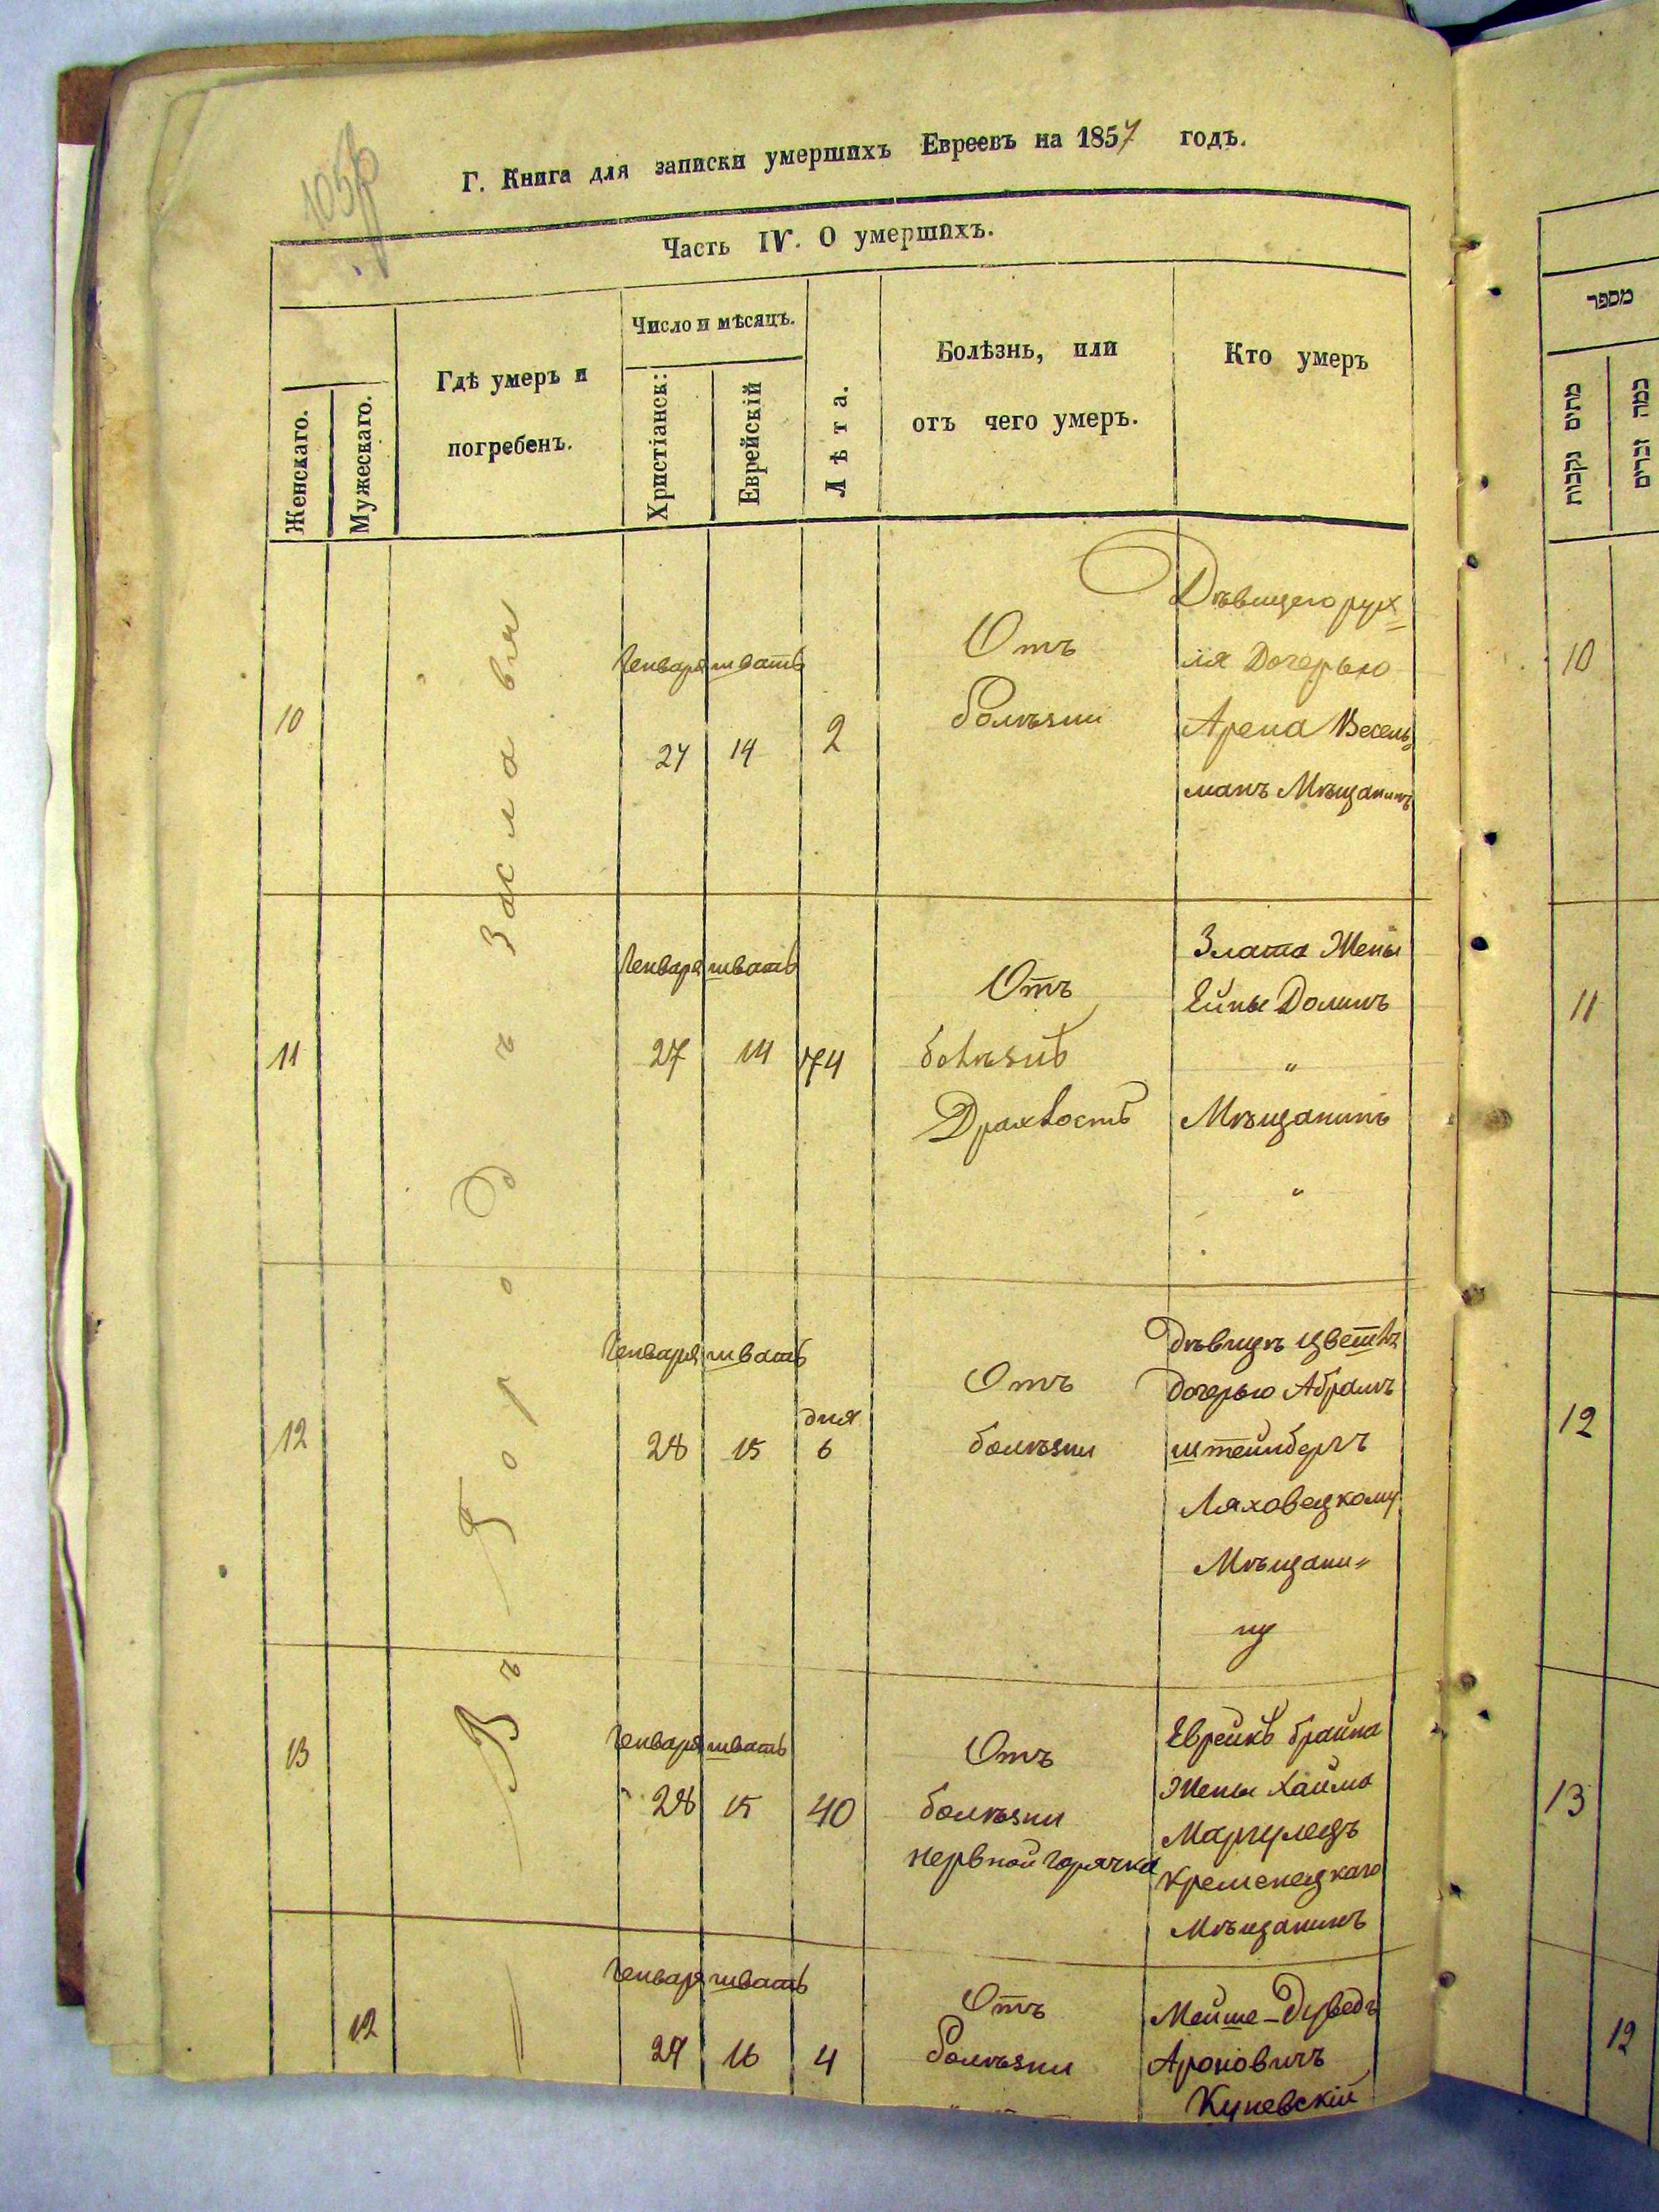 Г. Книга для записки умершихъ Евреевъ на 1857 годъ.
Часть IV. О умершихъ.
Женскаго.
Мужескаго.
Гдѣ умеръ и
погребенъ.
Число и мѣсяцъ.
Христіанск:
Еврейскій
Лѣта.
Болѣзнь, или
отъ чего умеръ.
Кто умеръ
Въ Городѣ Заславлѣ
10
Генваря шватъ
27 14
2
Отъ
Болѣзни
ля Дочерью
Арена Весель
манъ Мѣщанинъ
11
Генваря шватъ
27 14
74
Отъ
болѣзнь
Драхвость
Злата Жены
Долинъ
"
Мѣщанинъ
"
12
Генваря шватъ
28 15
дня
6
Отъ
болѣзни
Дѣвицѣ Цветлѣ
дочерью Абрамъ
штейнбергъ
Ляховецкому
Мѣщани=
ну
13
Генваря шватъ
28 15
40
Отъ
болѣзни
нервной горячка
Еврейкѣ брайна
Жены Хайма
Маргулецъ
Кременецкаго
Мѣщанинъ
12
Генваря шватъ
29 16
4
Отъ
Болѣзни
Мейше-Дуведъ
Ароновичъ
Куневскій
מספר
מתים נקבות
כמה זכרים
10
11
12
13
12